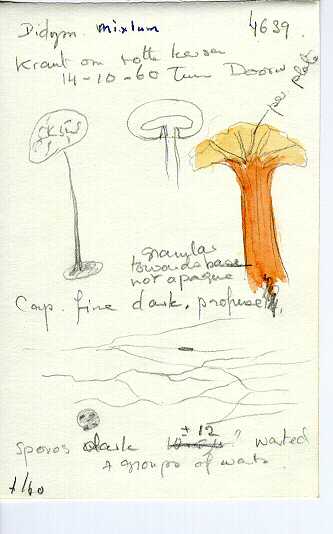 Didym. mixtum 4639.
Kraut om rotte kersen
14-10-60 Tuin Doorn
per. plate
granular
towards base
not opaque
Cap. fine dark, profuse
spores dark ± 12 " warted
+ groups of warts.